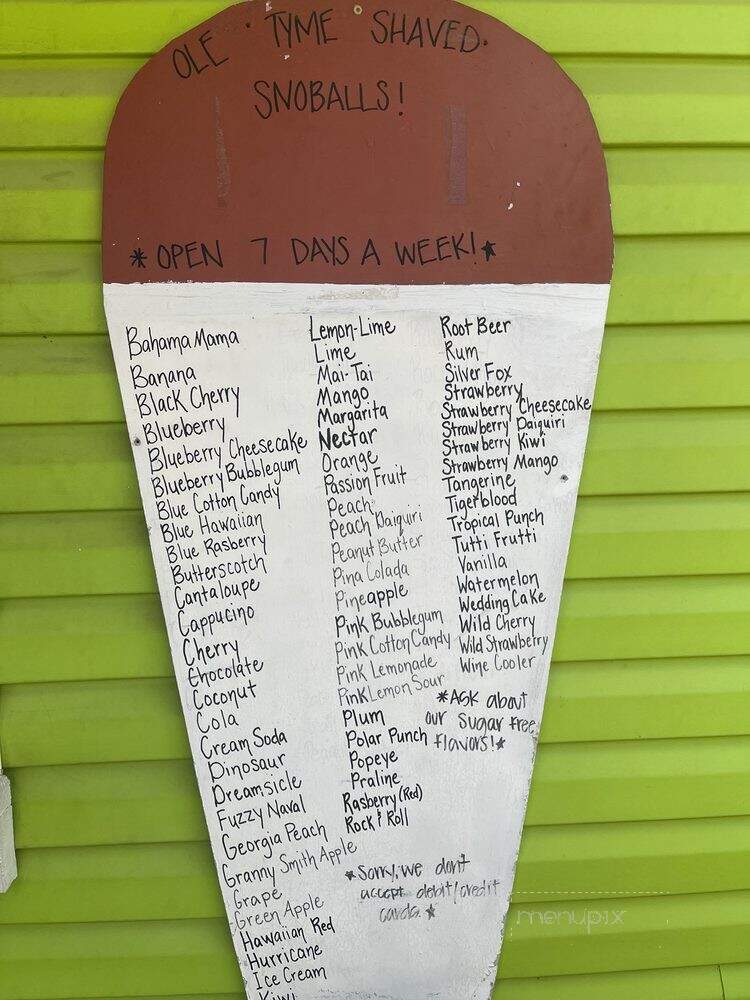 OLE · TYME SHAVED·
SNOBALLS!
* OPEN 7 DAYS A WEEK! ★
Bahama Mama
Banana
Black Cherry
Blueberry
Blueberry Cheesecake
Blueberry Bubblegum
Blue Cotton Candy
Blue Hawaiian
Blue Rasberry
Butterscotch
Cantaloupe
Cappucino
Cherry
Chocolate
Coconut
Cola
Cream Soda
Dinosaur
Dreamsicle
Fuzzy Naval
Georgia Peach
Granny Smith Apple
Grape
Green Apple
Hawaiian Red
Hurricane
Ice Cream
Kiwi
Lemon-Lime
Lime
Mai-Tai
Mango
Margarita
Nectar
Orange
Passion Fruit
Peach
Peach Daiquiri
Peanut Butter
Pina Colada
Pineapple
Pink Bubblegum
Pink Cotton Candy
Pink Lemonade
Pink Lemon Sour
Plum
Polar Punch
Popeye
Praline
Rasberry (Red)
Rock & Roll
Root Beer
Rum
Silver Fox
Strawberry
Strawberry Cheesecake
Strawberry Daiquiri
Strawberry Kiwi
Strawberry Mango
Tangerine
Tigerblood
Tropical Punch
Tutti Frutti
Vanilla
Watermelon
Wedding Cake
Wild Cherry
Wild Strawberry
Wine Cooler
*Ask about
our sugar free
flavors!★
★Sorry, we don't
accept debit/credit
cards.★
menupix